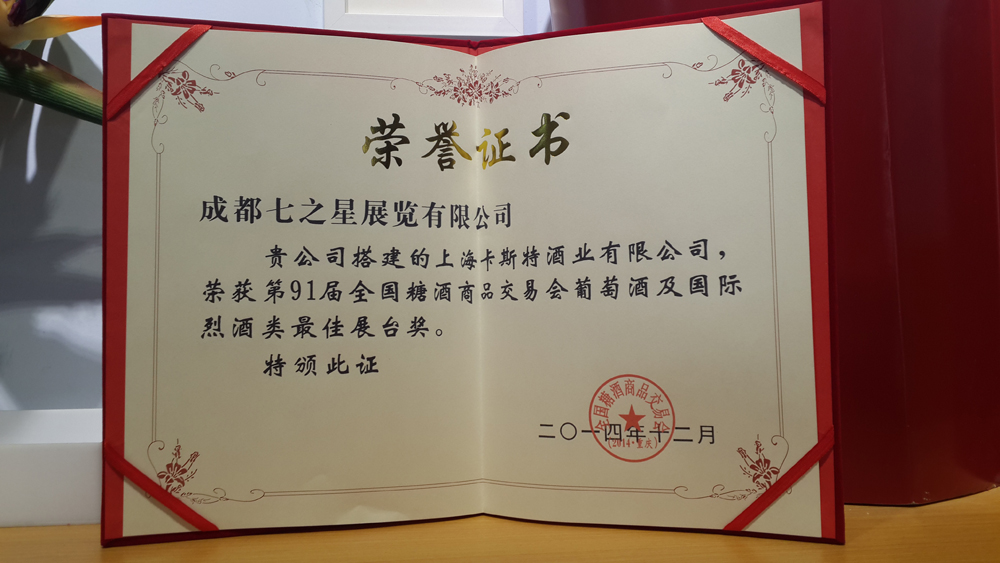 荣誉证书
成都七之星展览有限公司
贵公司搭建的上海卡斯特酒业有限公司，
荣获第91届全国糖酒商品交易会葡萄酒及国际
烈酒类最佳展台奖。
特颁此证
全国糖酒商品交易会
(2014·重庆)
二〇一四年十二月